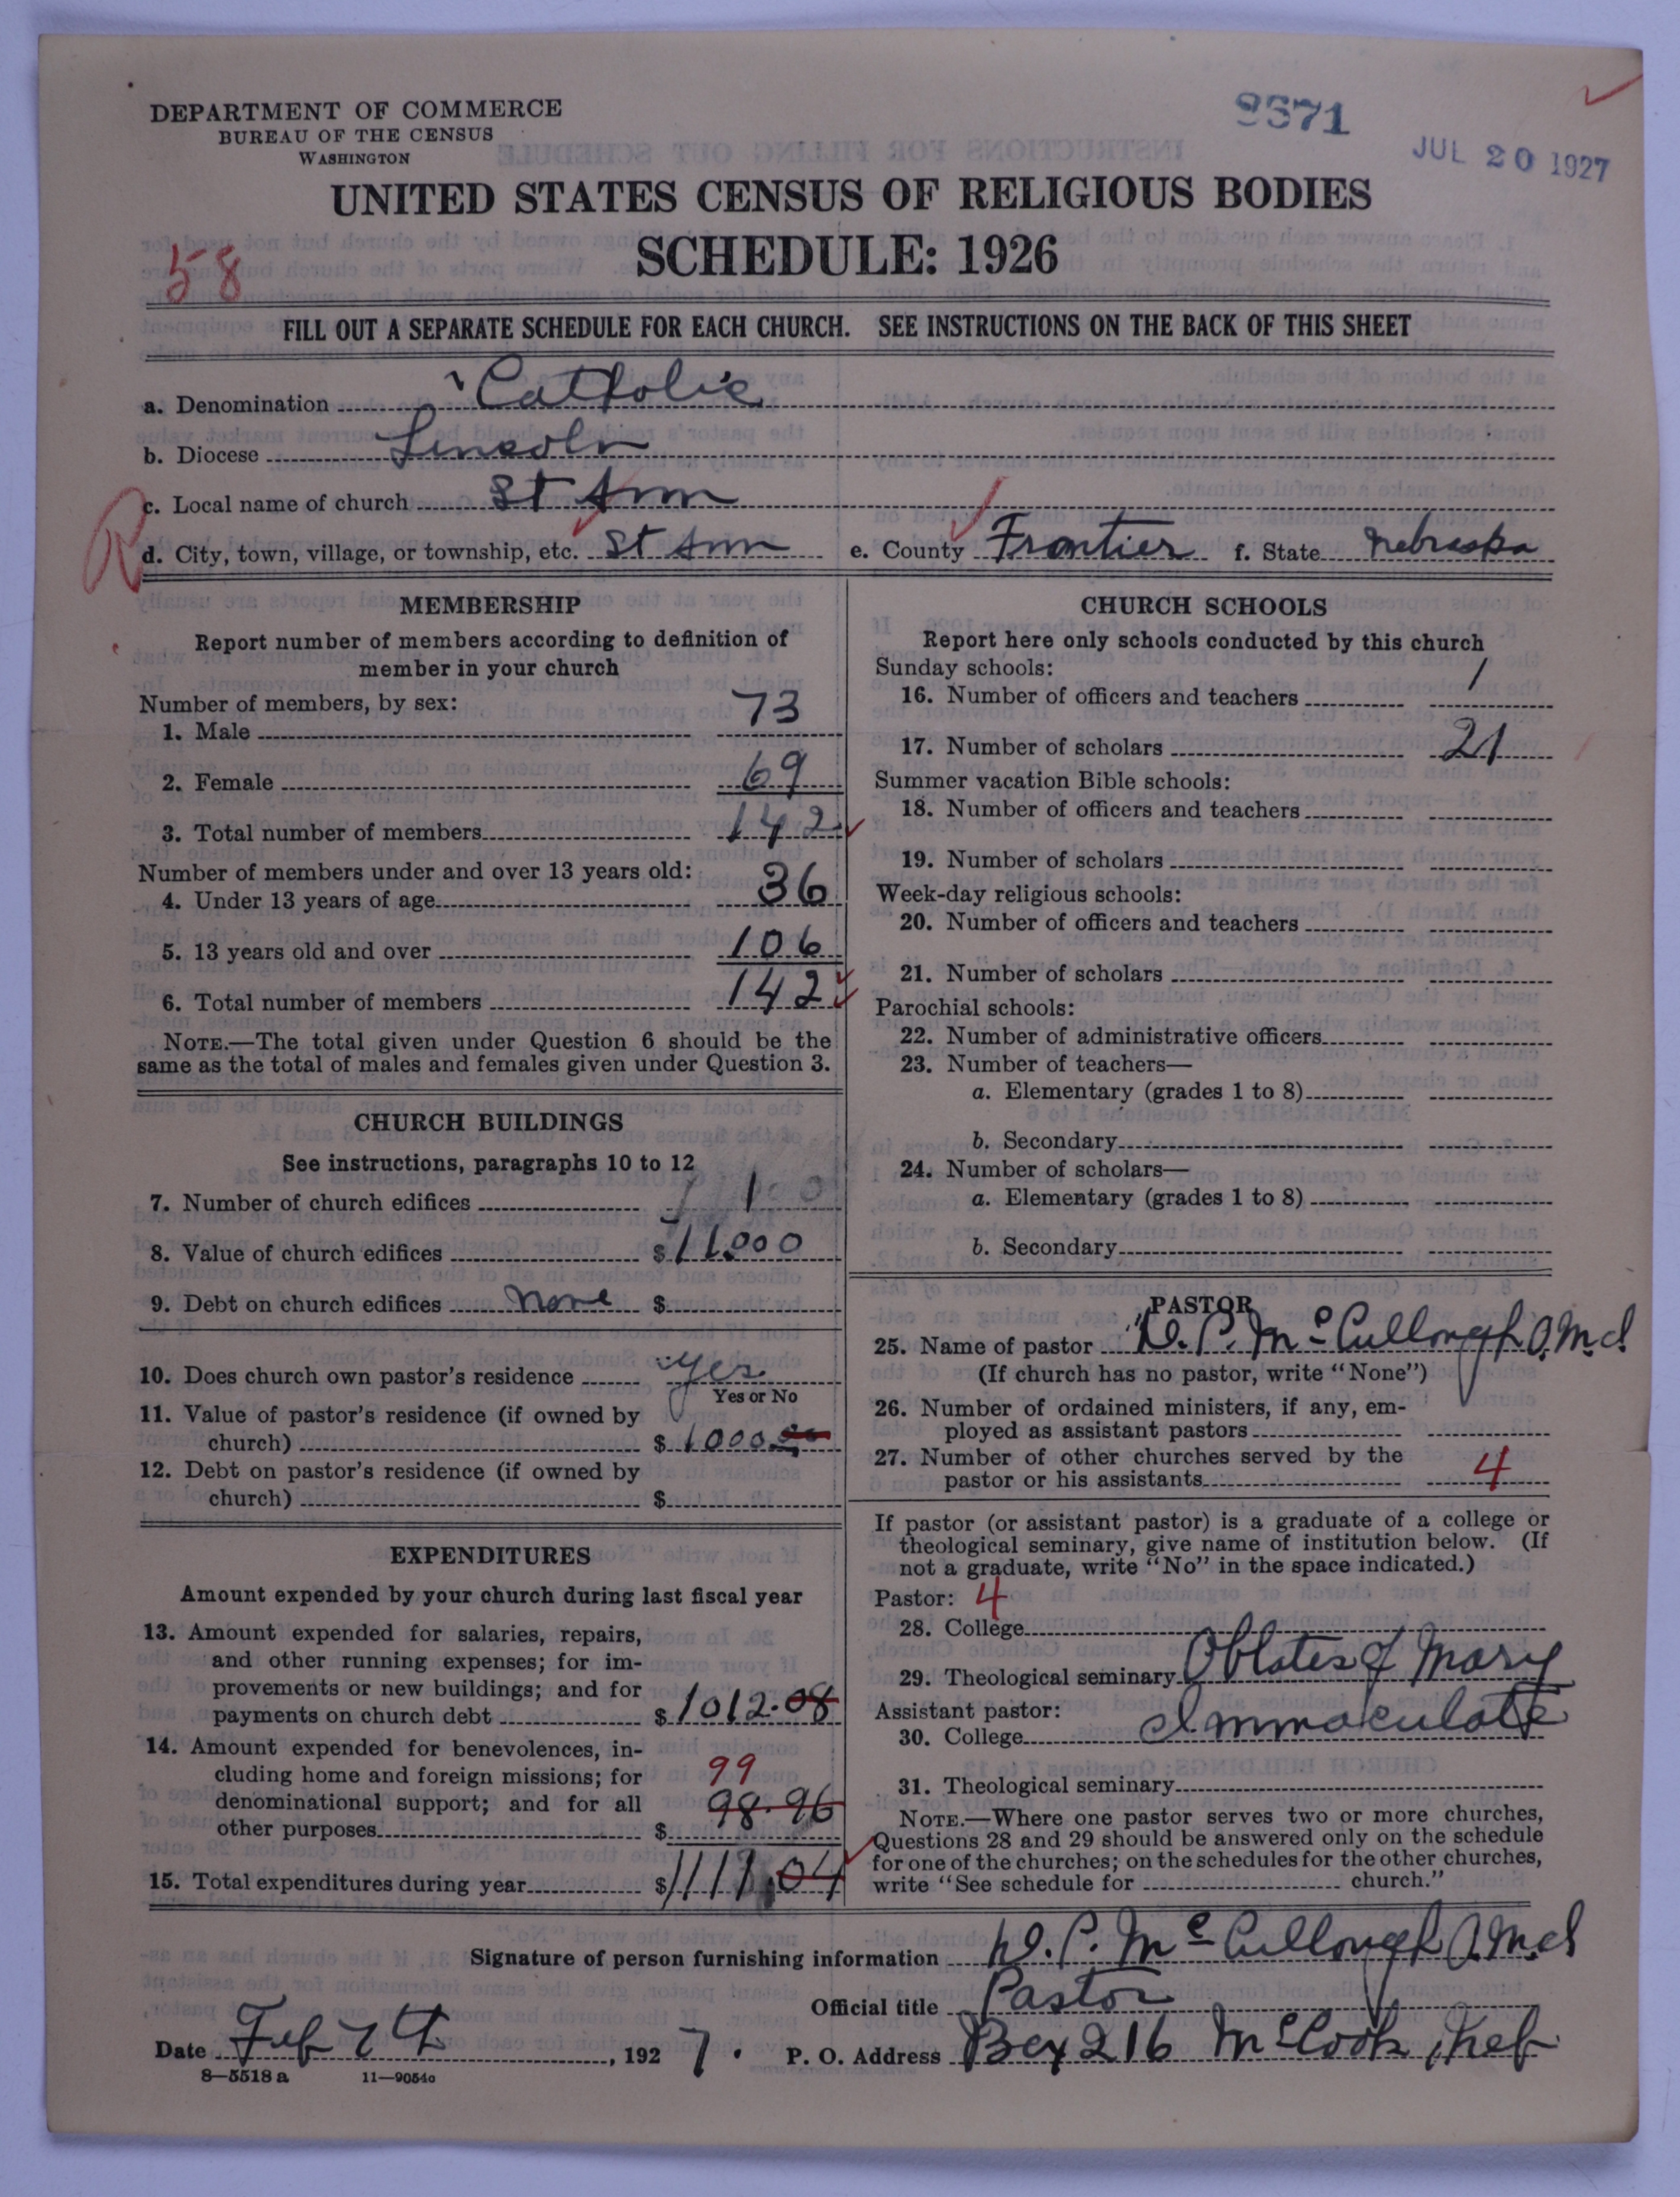 DEPARTMENT OF COMMERCE
BUREAU OF THE CENSUS
WASHINGTON
9371
JUL 20 1927
UNITED STATES CENSUS OF RELIGIOUS BODIES
SCHEDULE: 1926
58
FILL OUT A SEPARATE SCHEDULE FOR EACH CHURCH. SEE INSTRUCTIONS ON THE BACK OF THIS SHEET
a. Denomination Catholic
b. Diocese Lincoln
c. Local name of church St Ann
d. City, town, village, or township, etc. St Ann e. County Frontier f. State Nebraska
MEMBERSHIP
Report number of members according to definition of
member in your church
Number of members, by sex:
1. Male 73
2. Female 69
3. Total number of members 142
Number of members under and over 13 years old:
4. Under 13 years of age 36
5. 13 years old and over 106
6. Total number of members 142
NOTE.—The total given under Question 6 should be the
same as the total of males and females given under Question 3.
CHURCH BUILDINGS
See instructions, paragraphs 10 to 12
7. Number of church edifices 1
8. Value of church edifices $ 11000
9. Debt on church edifices none $
10. Does church own pastor's residence yes
Yes or No
11. Value of pastor's residence (if owned by
church) $ 1000.00
12. Debt on pastor's residence (if owned by
church) $
EXPENDITURES
Amount expended by your church during last fiscal year
13. Amount expended for salaries, repairs,
and other running expenses; for im-
provements or new buildings; and for
payments on church debt $ 1012.08
14. Amount expended for benevolences, in-
cluding home and foreign missions; for 99
denominational support; and for all 98.96
other purposes $
15. Total expenditures during year $ 1111.04
CHURCH SCHOOLS
Report here only schools conducted by this church
Sunday schools:
16. Number of officers and teachers 1
17. Number of scholars 21
Summer vacation Bible schools:
18. Number of officers and teachers
19. Number of scholars
Week-day religious schools:
20. Number of officers and teachers
21. Number of scholars
Parochial schools:
22. Number of administrative officers
23. Number of teachers—
a. Elementary (grades 1 to 8)
b. Secondary
24. Number of scholars—
a. Elementary (grades 1 to 8)
b. Secondary
PASTOR
25. Name of pastor D. P. McCullough O.M.I.
(If church has no pastor, write "None")
26. Number of ordained ministers, if any, em-
ployed as assistant pastors
27. Number of other churches served by the
pastor or his assistants 4
If pastor (or assistant pastor) is a graduate of a college or
theological seminary, give name of institution below. (If
not a graduate, write "No" in the space indicated.)
Pastor: 4
28. College
29. Theological seminary Oblates of Mary
Assistant pastor:
30. College Immaculate
31. Theological seminary
NOTE.—Where one pastor serves two or more churches,
Questions 28 and 29 should be answered only on the schedule
for one of the churches; on the schedules for the other churches,
write "See schedule for church."
Signature of person furnishing information D. P. McCullough O.M.I.
Official title Pastor
Date Feb 7th, 1927. P. O. Address Box 216 McCook, Neb
8—5518 a 11—9054o